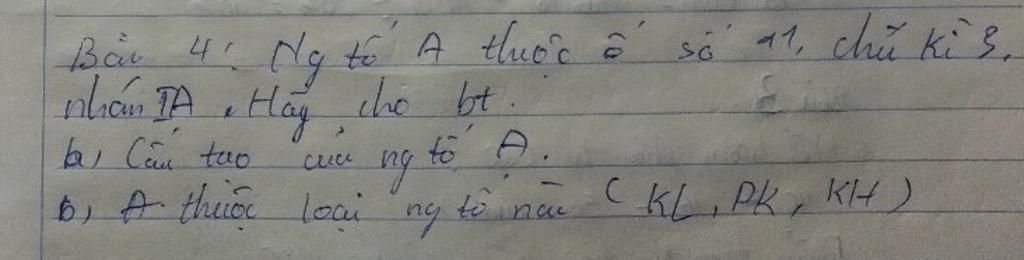 Bài 4: Ng tố A thuộc ô số 11, chữ kì 3,
nhóm IA. Hãy cho bt.
a, Cấu tạo của ng tố A.
b, A thuộc loại ng tố nào (KL, PK, KH)